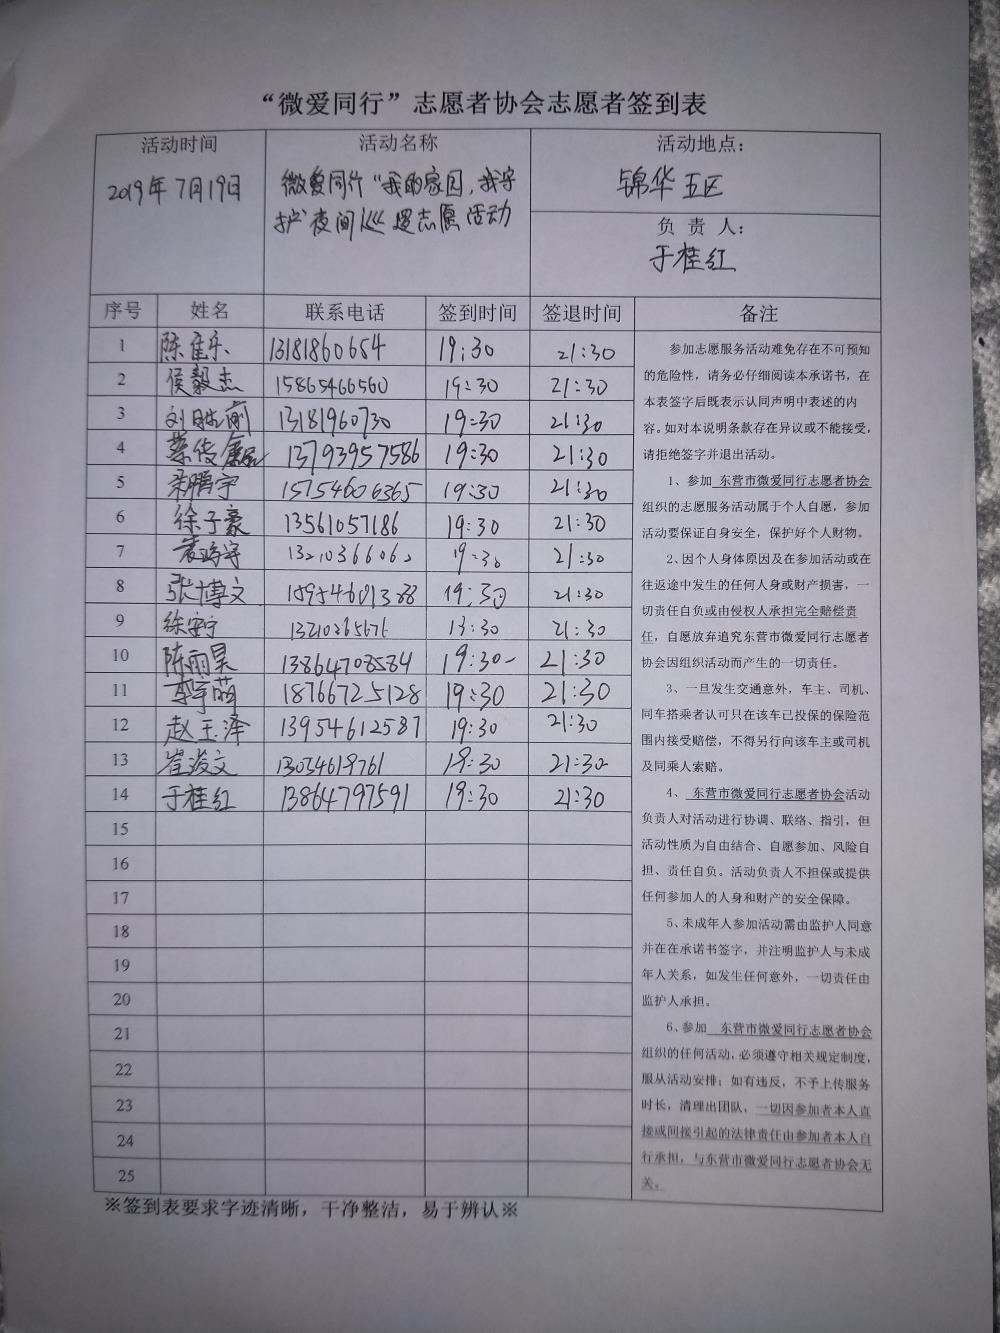 “微爱同行”志愿者协会志愿者签到表
活动时间 活动名称 活动地点：
2019年7月19日 微爱同行“我的家园，我守
护”夜间巡逻志愿活动
锦华五区
负责人：
于桂红
序号 姓名 联系电话 签到时间 签退时间 备注
1 陈佳乐 13181860654 19:30 21:30
2 侯毅杰 15865466560 19:30 21:30
3 刘 13181960730 19:30 21:30
4 蔡俊 13793957586 19:30 21:30
5 鹏宇 15754606365 19:30 21:30
6 徐子豪 13561057186 19:30 21:30
7 19:30 21:30
8 张博文 19:30 21:30
9 徐 13210265676 21:30
10 陈雨昊 13864708584 19:30 21:30
11 李宇萌 18766725128 19:30 21:30
12 赵玉泽 13954612587 19:30 21:30
13 崔浚文 13034619761 21:30
14 于桂红 13864797591 19:30 21:30
15
16
17
18
19
20
21
22
23
24
25
参加志愿服务活动难免存在不可预知
的危险性，请务必仔细阅读本承诺书，在
本表签字后既表示认同声明中表述的内
容。如对本说明条款存在异议或不能接受，
请拒绝签字并退出活动。
1、参加 东营市微爱同行志愿者协会
组织的志愿服务活动属于个人自愿，参加
活动要保证自身安全，保护好个人财物。
2、因个人身体原因及在参加活动或在
往返途中发生的任何人身或财产损害，一
切责任自负或由侵权人承担完全赔偿责
任，自愿放弃追究东营市微爱同行志愿者
协会因组织活动而产生的一切责任。
3、一旦发生交通意外，车主、司机、
同车搭乘者认可只在该车已投保的保险范
围内接受赔偿，不得另行向该车主或司机
及同乘人索赔。
4、 东营市微爱同行志愿者协会活动
负责人对活动进行协调、联络、指引，但
活动性质为自由结合、自愿参加、风险自
担、责任自负。活动负责人不担保或提供
任何参加人的人身和财产的安全保障。
5、未成年人参加活动需由监护人同意
并在在承诺书签字，并注明监护人与未成
年人关系，如发生任何意外，一切责任由
监护人承担。
6、参加 东营市微爱同行志愿者协会
组织的任何活动，必须遵守相关规定制度，
服从活动安排；如有违反，不予上传服务
时长，清理出团队，一切因参加者本人直
接或间接引起的法律责任由参加者本人自
行承担，与东营市微爱同行志愿者协会无
关。
※签到表要求字迹清晰，干净整洁，易于辨认※